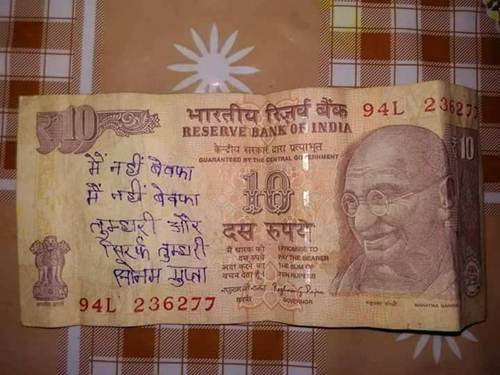 भारतीय रिज़र्व बैंक
RESERVE BANK OF INDIA
केन्द्रीय सरकार द्वारा प्रत्याभूत
GUARANTEED BY THE CENTRAL GOVERNMENT
94L 236277
₹10
10
10
दस रुपये
मैं नहीं बेवफा
मैं नहीं बेवफा
तुम्हारी और
सिर्फ तुम्हारी
सोनम गुप्ता
मैं धारक को
दस रुपये
अदा करने का
वचन देता हूँ ।
I PROMISE TO
PAY THE BEARER
THE SUM OF
TEN RUPEES
GOVERNOR
94L 236277
महात्मा गांधी
MAHATMA GANDHI